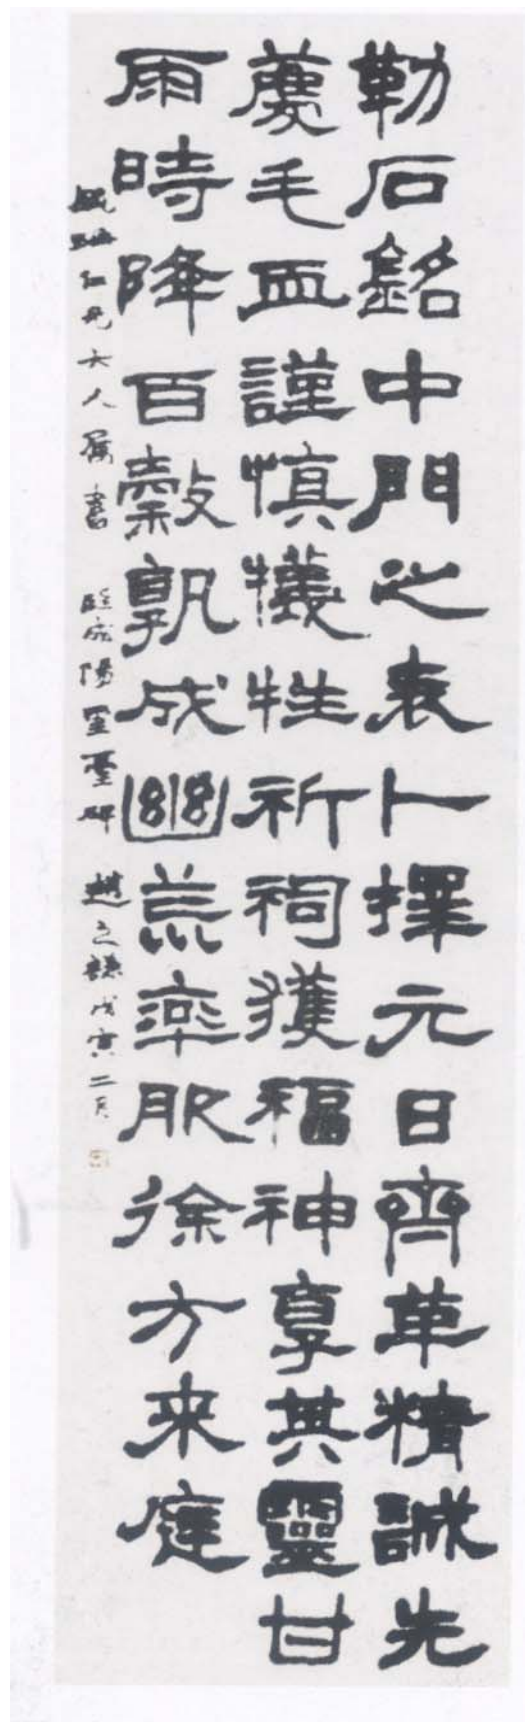 勒石銘中門之表卜擇元日齊革精誠先
薦毛血謹慎犧牲祈祠獲福神享其靈甘
雨時降百穀孰成幽荒率服徐方來庭
仁兄大人屬書 臨成陽靈臺碑 趙之謙戊寅二月